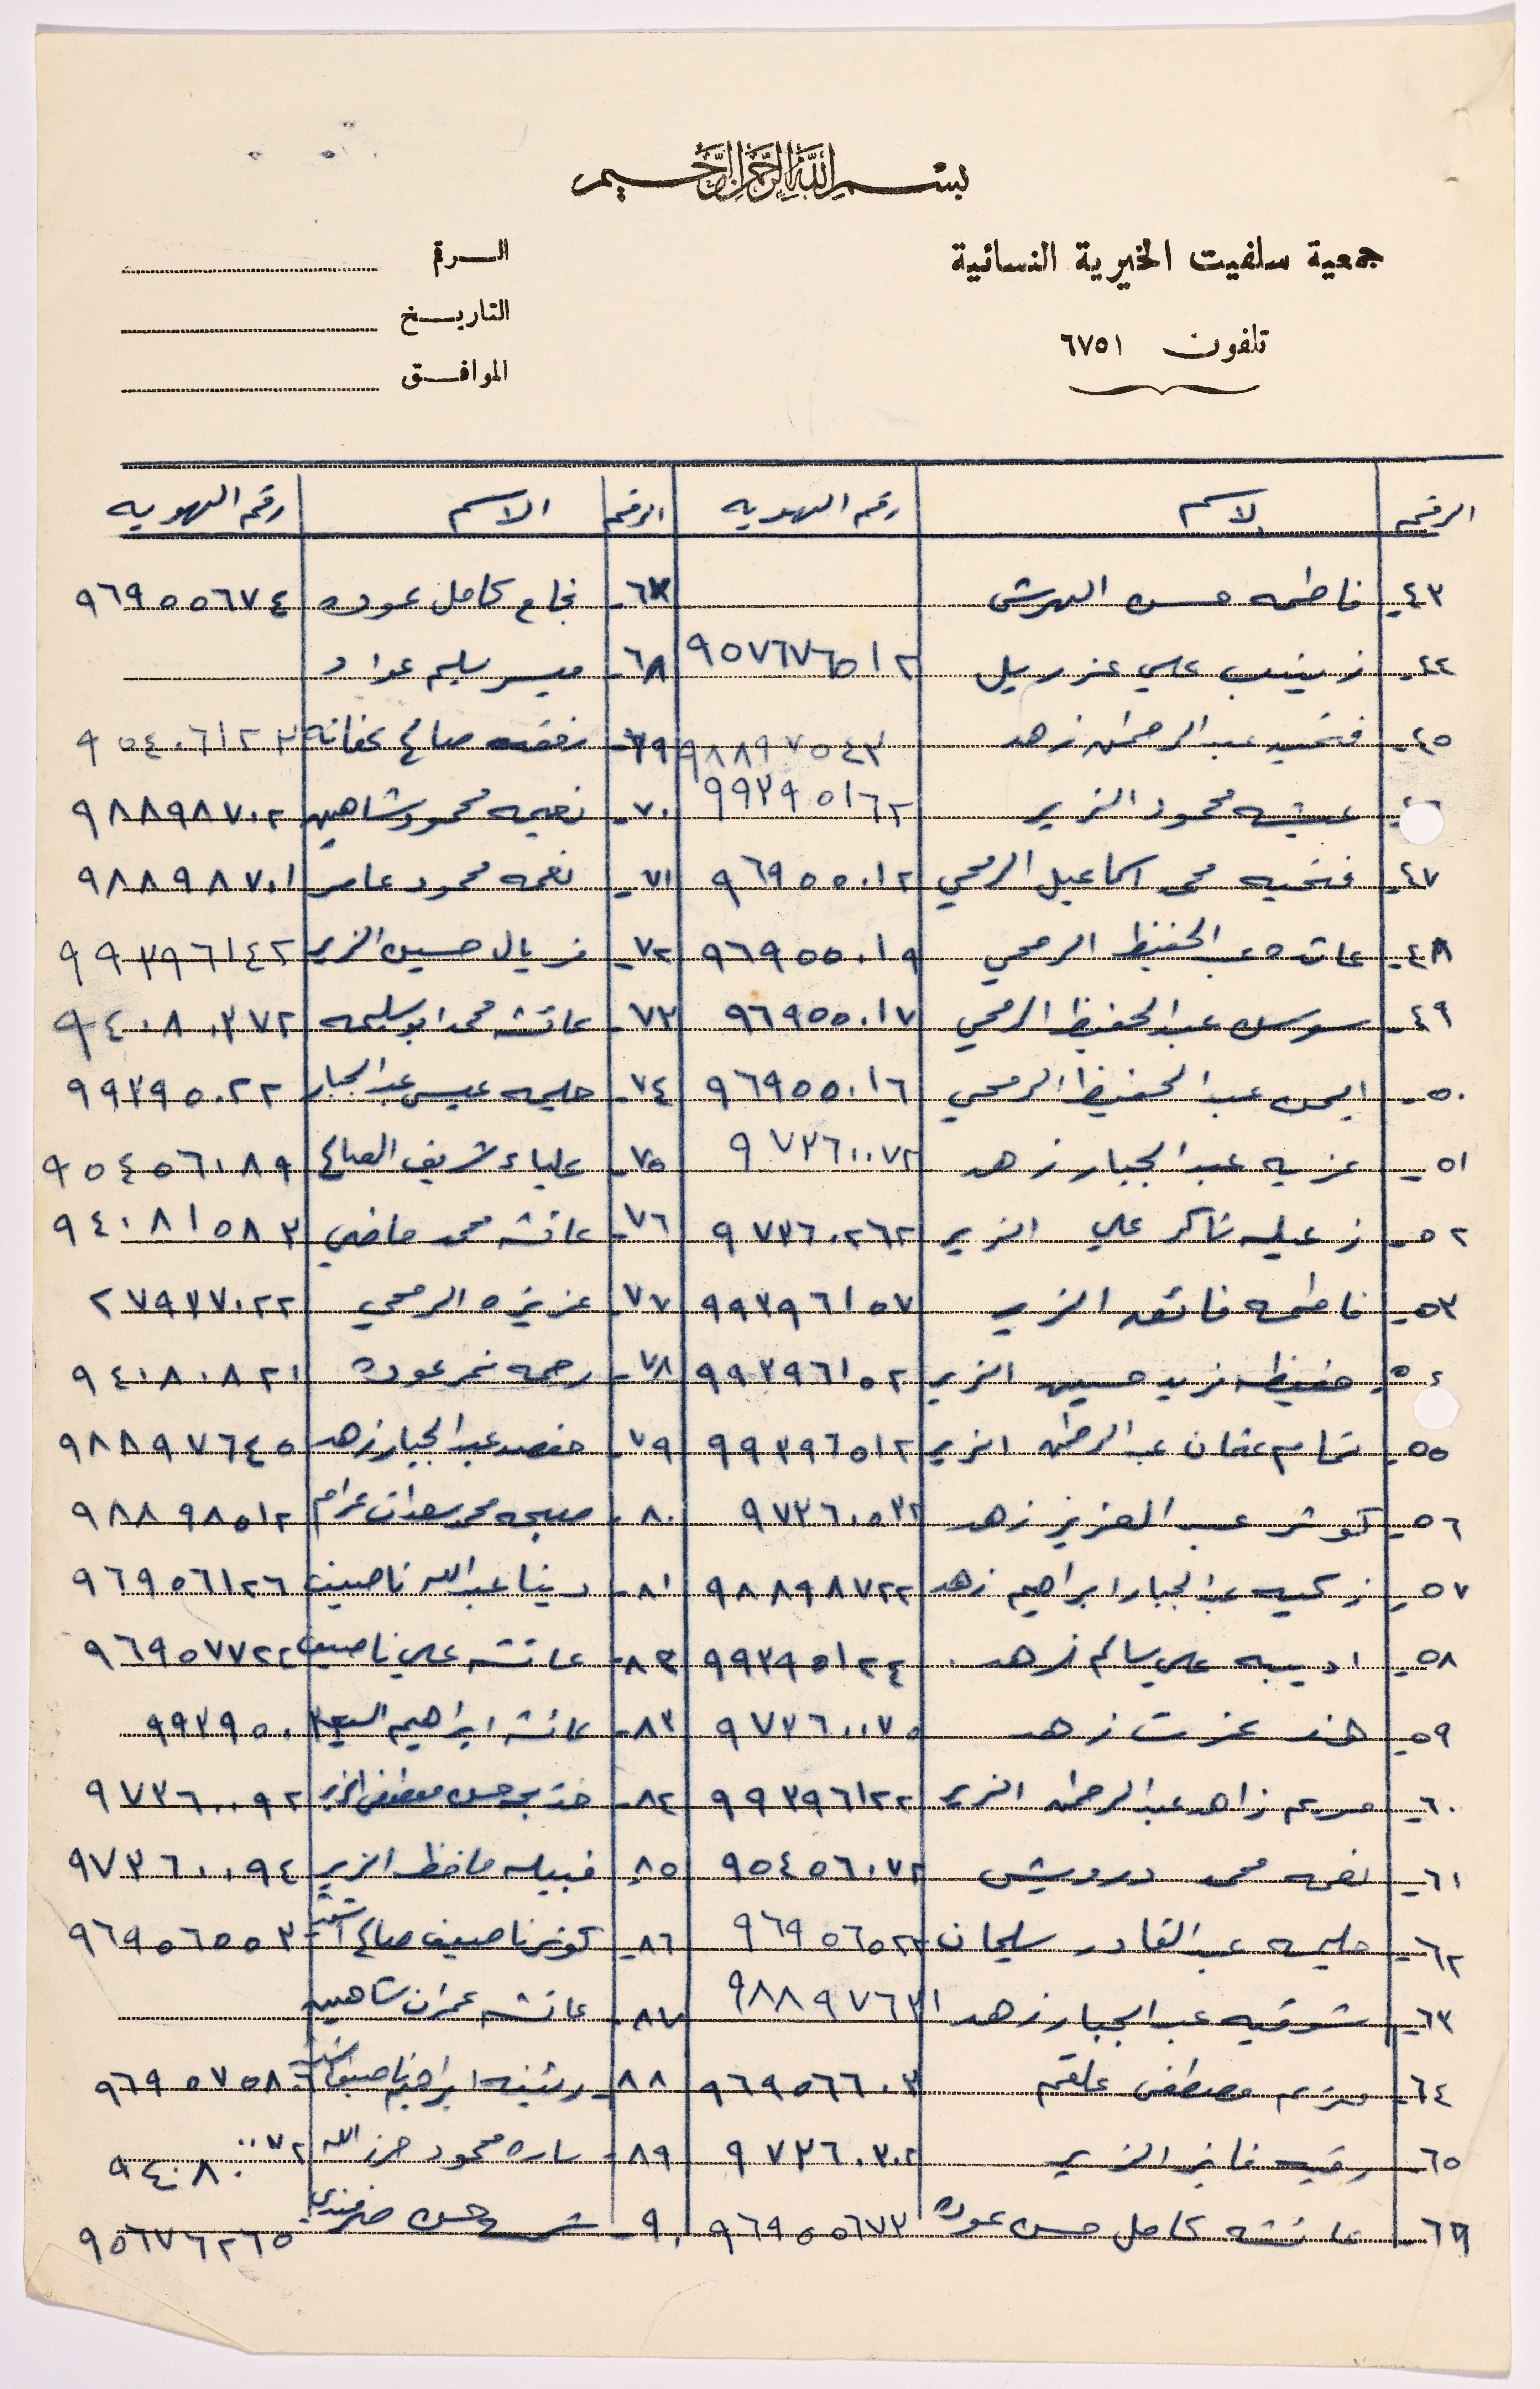 بسم الله الرحمن الرحيم
جمعية سلفيت الخيرية النسائية
تلفون ٦٧٥١
الرقم
التاريخ
الموافق
الرقم الاسم رقم الهويه الرقم الاسم رقم الهويه
٤٣- فاطمه حسن الهرش ٦٧- نجاح كامل عوده ٩٦٩٥٥٦٧٤
٤٤- زينب علي عزريل ٩٥٧٦٧٦٥١٢ ٦٨- ميسر سليم عواد
٤٥- فتحيه عبد الرحمن زهد ٩٨٨٩٧٥٤٣ ٦٩- صالح عفانه ٩٥٤٠٦١٢٣
٤٦- عيشه محمود الزير ٩٩٣٩٥١٦٢ ٧٠- نعيمه محمود شاهين ٩٨٨٩٨٧٠٢
٤٧- فتحيه محمد اسماعيل الرمحي ٩٦٩٥٥٠١٢ ٧١- نعمه محمود عامر ٩٨٨٩٨٧٠١
٤٨- عائده عبد الحفيظ الرمحي ٩٦٩٥٥٠١٩ ٧٢- فريال حسين الزير ٩٩٣٩٦١٤٢
٤٩- سوسن عبد الحفيظ الرمحي ٩٦٩٥٥٠١٧ ٧٣- عائشه محمد ابو سليمه ٩٤٠٨٠٣٧٢
٥٠- ايمن عبد الحفيظ الرمحي ٩٦٩٥٥٠١٦ ٧٤- حليمه عيسى عبد الجبار ٩٩٣٩٥٠٢٢
٥١- عزيه عبد الجبار زهد ٩٧٣٦٠٠٧٢ ٧٥- علياء شريف الصالح ٩٥٤٥٦٠٨٩
٥٢- شاكر علي الزير ٩٧٣٦٠٢٦٢ ٧٦- عائشه محمد ماضي ٩٤٠٨١٥٨٣
٥٣- فاطمه فائق الزير ٩٩٣٩٦١٥٧ ٧٧- عزيزه الرمحي ٢٧٩٣٧٠٢٢
٥٤- حفيظه فريد حسين الزير ٩٩٣٩٦١٥٢ ٧٨- رحمه نمر عوده ٩٤٠٨٠٨٢١
٥٥- تمام عثمان عبد الرحمن الزير ٩٩٣٩٦٥١٢ ٧٩- حفصه عبد الجبار زهد ٩٨٨٩٧٦٤٥
٥٦- كوثر عبد العزيز زهد ٩٧٣٦٠٥٣٢ ٨٠- صبحه محمد سعدات عرام ٩٨٨٩٨٥١٢
٥٧- زكيه عبد الجبار ابراهيم زهد ٩٨٨٩٨٧٢٢ ٨١- دينا عبد الله ناصيف ٩٦٩٥٦١٢٦
٥٨- اديبه علي سالم زهد ٩٩٣٩٥١٢٤ ٨٢- عائشه علي ناصيف ٩٦٩٥٧٧٢٢
٥٩- هند عزت زهد ٩٧٣٦٠٠٧٥ ٨٣- عائشه ابراهيم ٩٩٣٩٥٠
٦٠- مريم زاهد عبد الرحمن الزير ٩٩٣٩٦١٢٢ ٨٤- خديجه حسن مصطفى الزير ٩٧٣٦٠٠٩٢
٦١- نعمه محمد درويش ٩٥٤٥٦٠٧٢ ٨٥- نبيله حافظ الزير ٩٧٣٦٠٠٩٤
٦٢- حليمه عبد القادر سليمان ٩٦٩٥٦٥٢٢ ٨٦- كوثر ناصيف صالح اشتيه ٩٦٩٥٦٥٥٣
٦٣- شوقيه عبد الجبار زهد ٩٨٨٩٧٦٣١ ٨٧- عائشه عمران شاهين
٦٤- مريم مصطفى علقم ٩٦٩٥٦٦٠٣ ٨٨- رئيفه ابراهيم ناصيف اشتيه ٩٦٩٥٧٥٨٦
٦٥- رقيه فايز الزير ٩٧٣٦٠٣٠٢ ٨٩- ساره محمود حرز الله ٩٤٠٨٠٠٠٧٢
٦٦- عائشه كامل حسن عوده ٩٦٩٥٥٦٧٣ ٩٠- حسن ٩٥٦٧٦٢٦٥